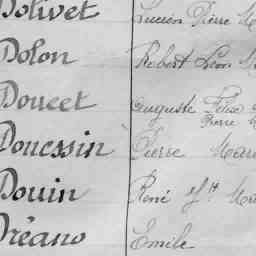 Dolivet Lucien Pierre
Dolon Robert Leon
Doucet Auguste
Pierre
Doucssin Pierre
Douin René
Dréano Emile